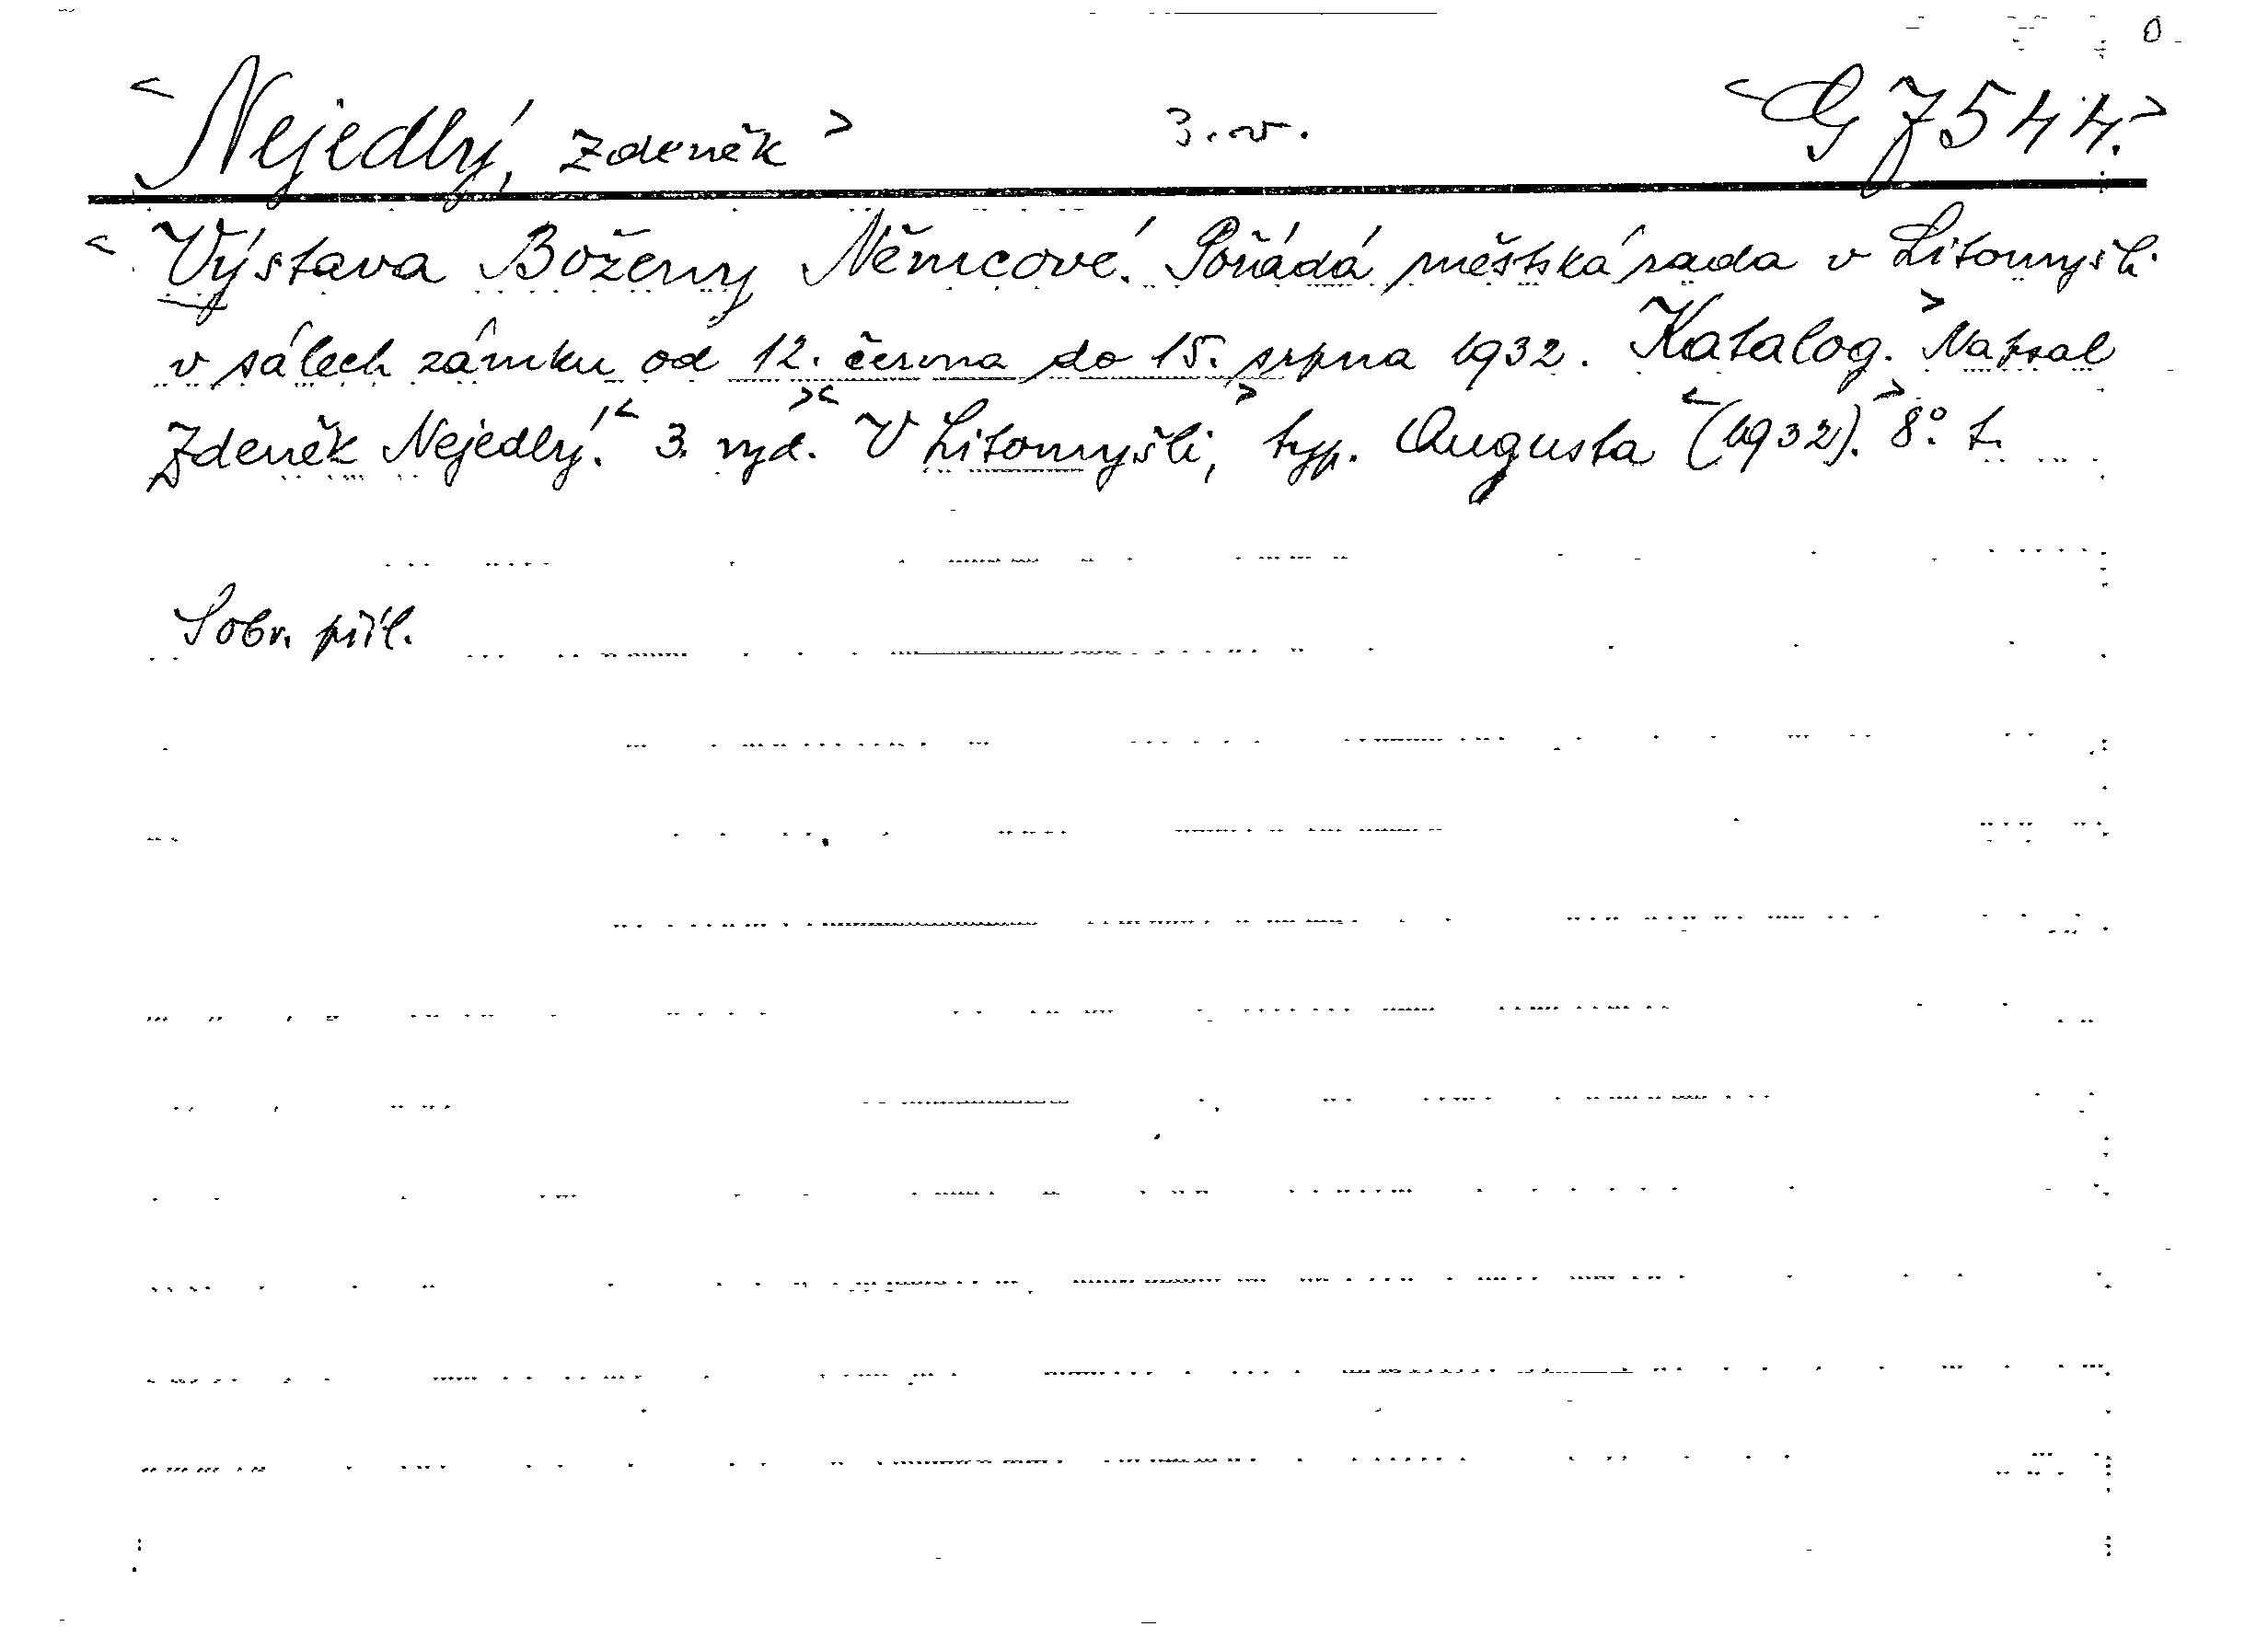 <Nejedlý, Zdeněk> 3. v. <G 7544.>
<Výstava Boženy Němcové. Pořádá městská rada v Litomyšli
v sálech zámku od 12. června do 15. srpna 1932. Katalog.> Napsal
Zdeněk Nejedlý. <3. vyd.> <V Litomyšli,> typ. Augusta <(1932).> 8°. t.
S obr. příl.